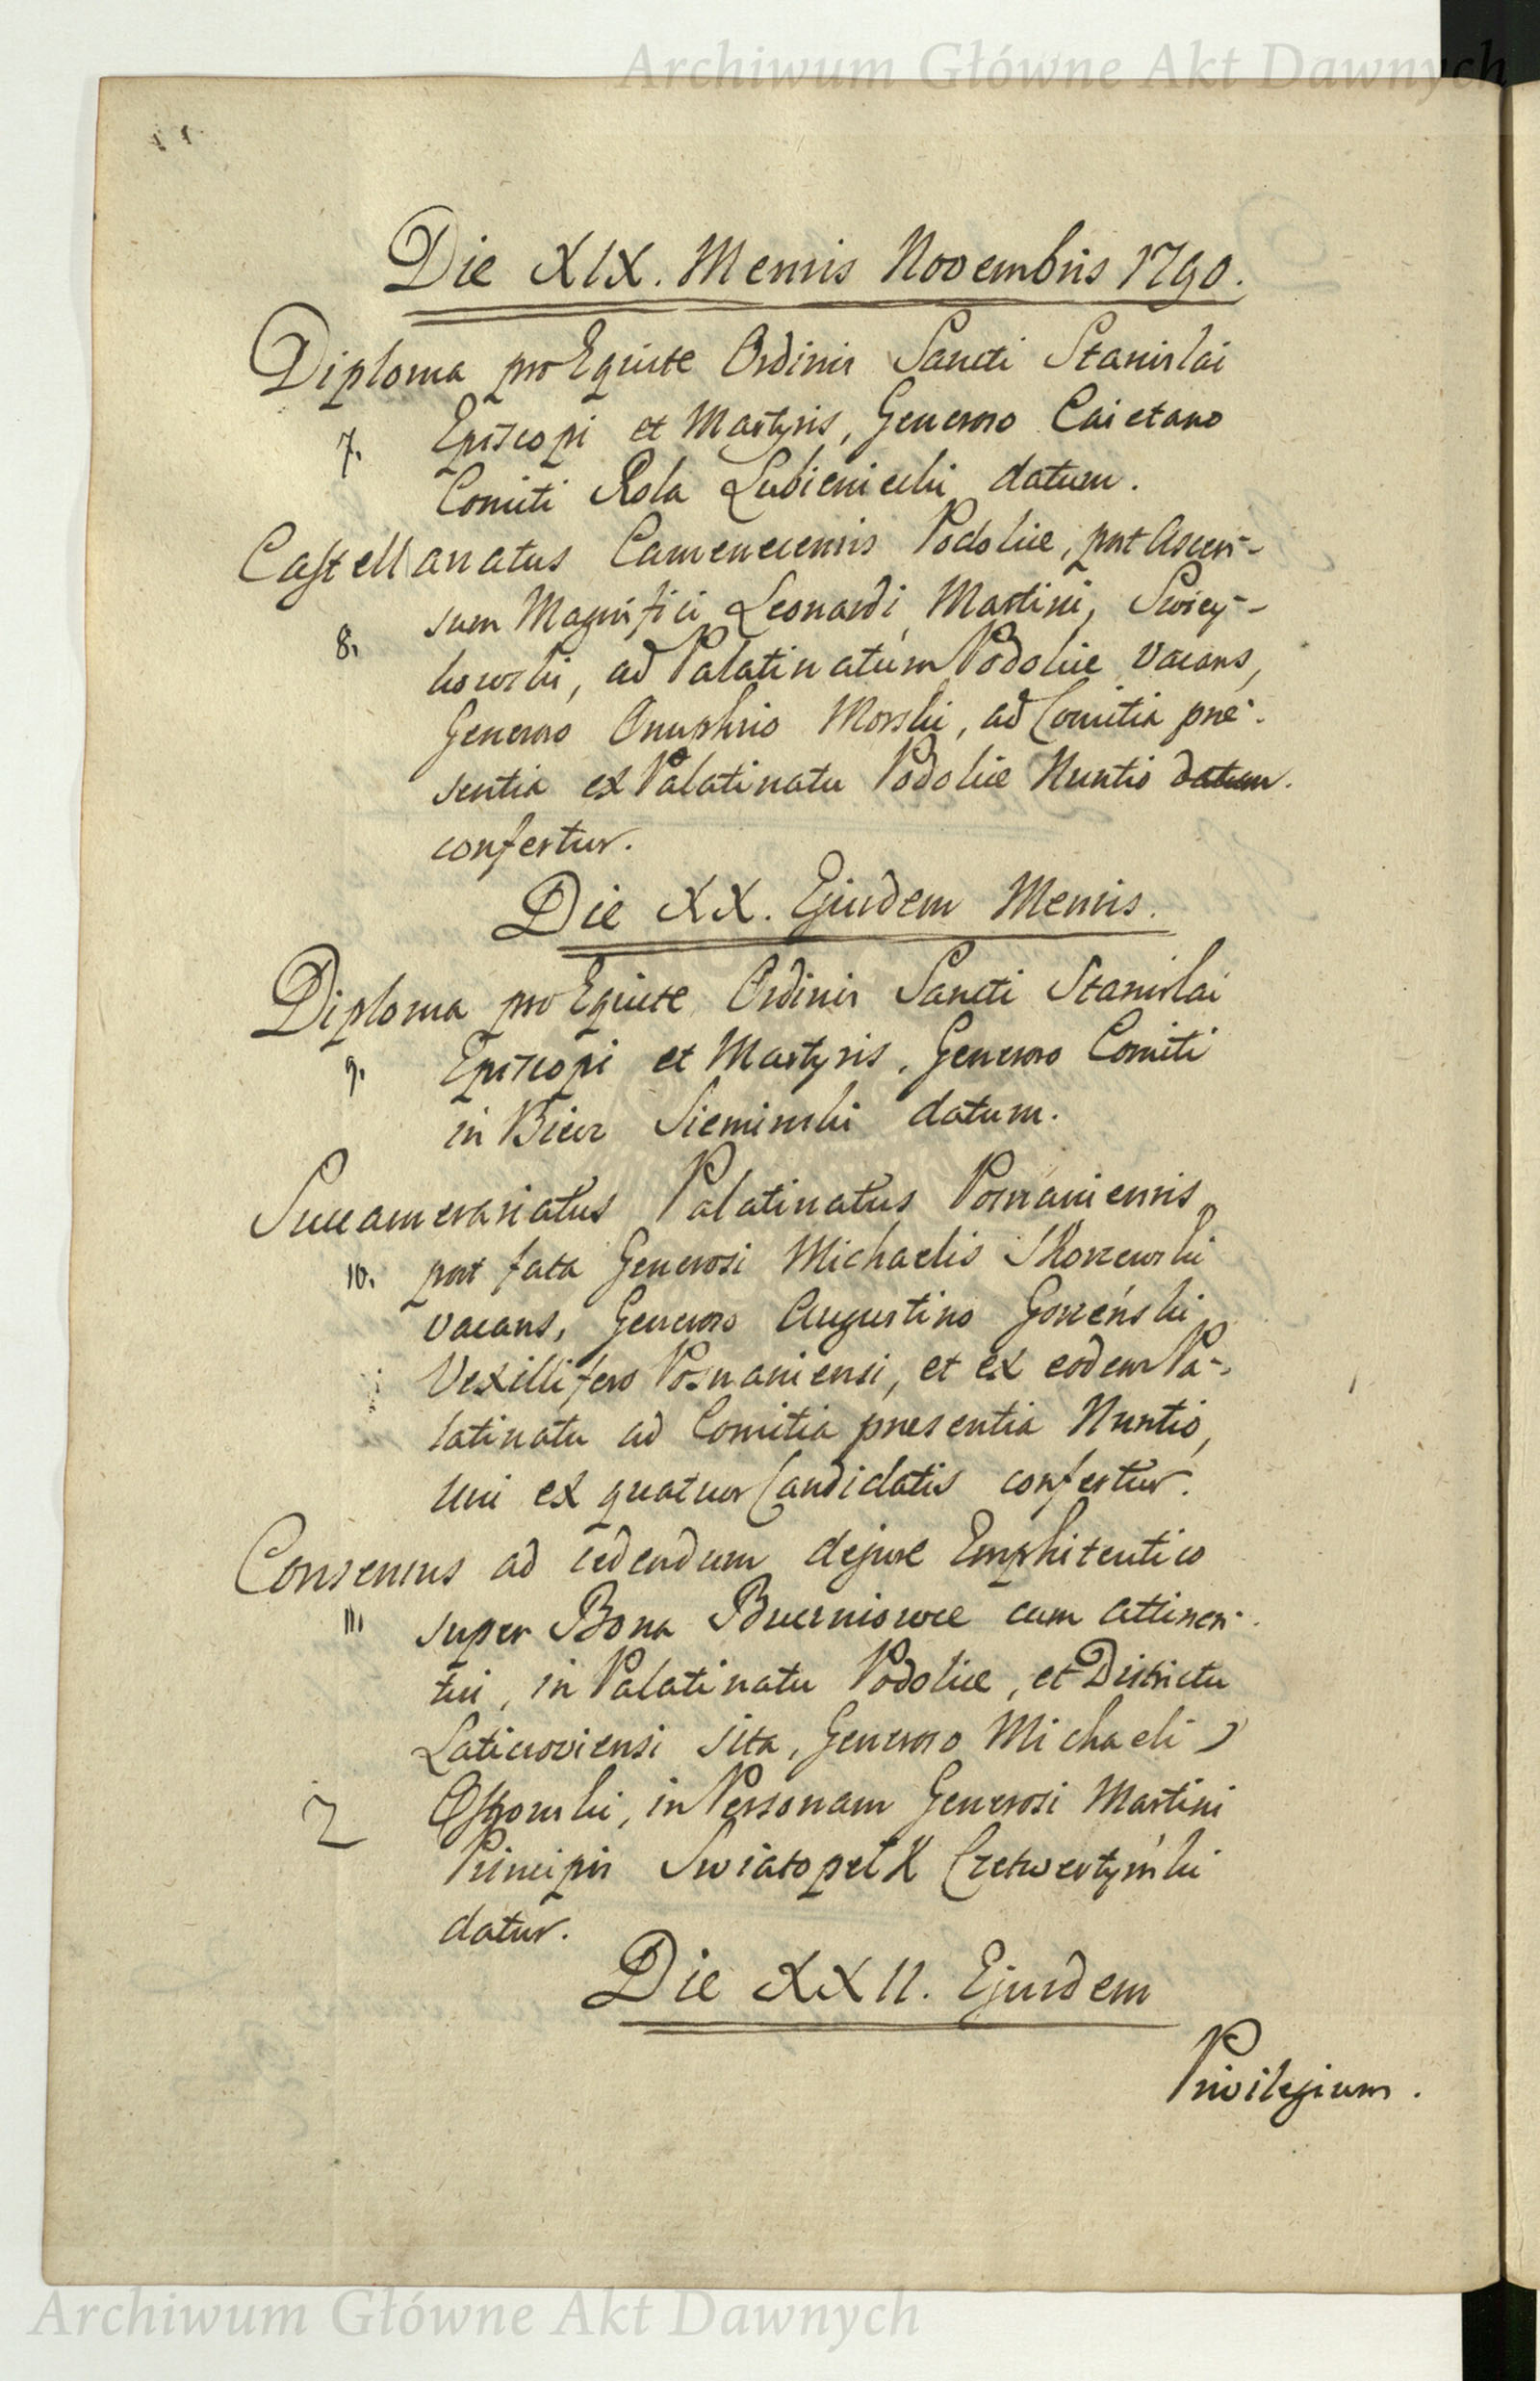 Archiwum Główne Akt Dawnych
Die XIX. Mensis Novembris 1790.
Diploma pro Equite Ordinis Sancti Stanislai
7. Episcopi et Martyris, Generoso Caietano
Comiti Rola Lubieniecki datum.
Castellanatus Camenecensis Podoliæ, post Ascen-
sum Magnifici Leonardi, Martini, Swiey-
8.
kowski, ad Palatinatum Podoliæ vacans,
Generoso Onuphrio Morski, ad Comitia præ-
sentia ex Palatinatu Podoliæ Nuntio datum.
confertur.
Die XX. Ejusdem Mensis.
Diploma pro Equite Ordinis Sancti Stanislai
9. Episcopi et Martyris, Generoso Comiti
in Biecz Sieminski datum.
Succamerariatus Palatinatus Posnaniensis,
10. post fata Generosi Michaelis Skorzewski
vacans, Generoso Augustino Gorzeński
Vexillifero Posnaniensi, et ex eodem Pa-
latinatu ad Comitia præsentia Nuntio,
uni ex quatuor Candidatis confertur.
Consensus ad cedendum de jure Emphiteutico
11. super Bona Bucniowce cum attinen-
tii, in Palatinatu Podoliæ, et Districtu
Laticzoviensi sita, Generoso Michaeli
2 in Personam Generosi Martini
Principis Swiatopełk Czetwertyński
datur.
Die XXII. Ejusdem
Privilegium.
Archiwum Główne Akt Dawnych